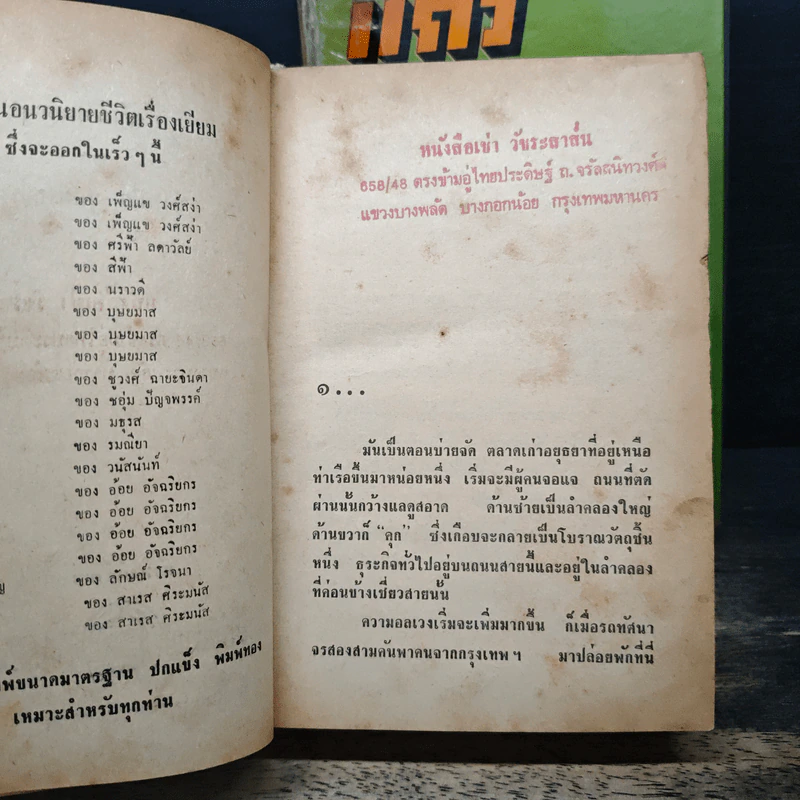 แถว
นอนวนิยายชีวิตเรื่องเยี่ยม
ซึ่งจะออกในเร็ว ๆ นี้
ของ เพ็ญแข วงศ์สง่า
ของ เพ็ญแข วงศ์สง่า
ของ ศรีฟ้า ลดาวัลย์
ของ สีฟ้า
ของ นราวดี
ของ บุษยมาส
ของ บุษยมาส
ของ บุษยมาส
ของ ชูวงศ์ ฉายะจินดา
ของ ชอุ่ม ปัญจพรรค์
ของ มธุรส
ของ รมณียา
ของ วนัสนันท์
ของ อ้อย อัจฉริยกร
ของ อ้อย อัจฉริยกร
ของ อ้อย อัจฉริยกร
ของ อ้อย อัจฉริยกร
ของ ลักษณ์ โรจนา
ของ สาเรส ศิระมนัส
ของ สาเรส ศิระมนัส
พ์ขนาดมาตรฐาน ปกแข็ง พิมพ์ทอง
เหมาะสำหรับทุกท่าน
หนังสือเช่า วัชระสาส์น
658/48 ตรงข้ามอู่ไทยประดิษฐ์ ถ.จรัลสนิทวงศ์
แขวงบางพลัด บางกอกน้อย กรุงเทพมหานคร
๑...
มันเป็นตอนบ่ายจัด ตลาดเก่าอยุธยาที่อยู่เหนือ
ท่าเรือขึ้นมาหน่อยหนึ่ง เริ่มจะมีผู้คนจอแจ ถนนที่ตัด
ผ่านนั้นกว้างแลดูสอาด ด้านซ้ายเป็นลำคลองใหญ่
ด้านขวาก็ “คุก” ซึ่งเกือบจะกลายเป็นโบราณวัตถุชิ้น
หนึ่ง ธุระกิจทั่วไปอยู่บนถนนสายนี้และอยู่ในลำคลอง
ที่ค่อนข้างเชี่ยวสายนั้น
ความอลเวงเริ่มจะเพิ่มมากขึ้น ก็เมื่อรถทัศนา
จรสองสามคันพาคนจากกรุงเทพ ฯ มาปล่อยพักที่นี่